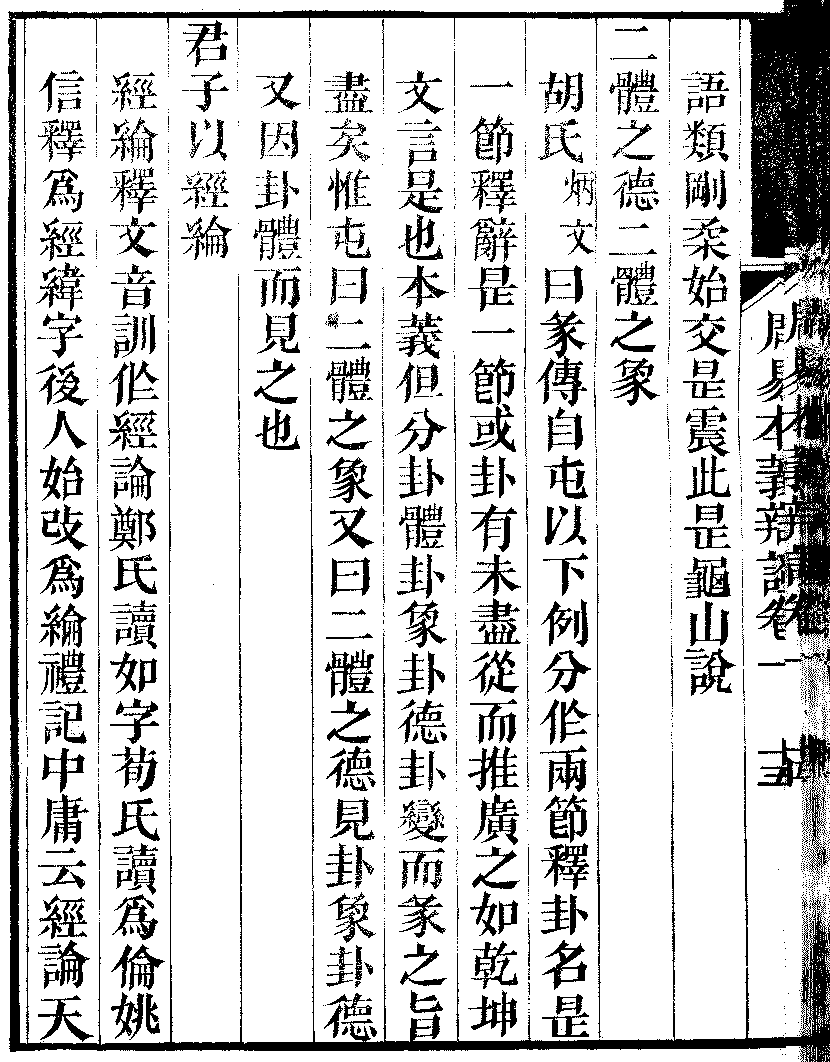 周易本義辨證卷一
語類剛柔始交是震此是龜山說
二體之德二體之象
胡氏炳文曰彖傳自屯以下例分作兩節釋卦名是
一節釋辭是一節或卦有未盡從而推廣之如乾坤
文言是也本義但分卦體卦象卦德卦變而彖之旨
盡矣惟屯曰二體之象又曰二體之德見卦象卦德
又因卦體而見之也
君子以經綸
經綸釋文音訓作經論鄭氏讀如字荀氏讀為倫姚
信釋為經緯字後人始改為綸禮記中庸云經論天